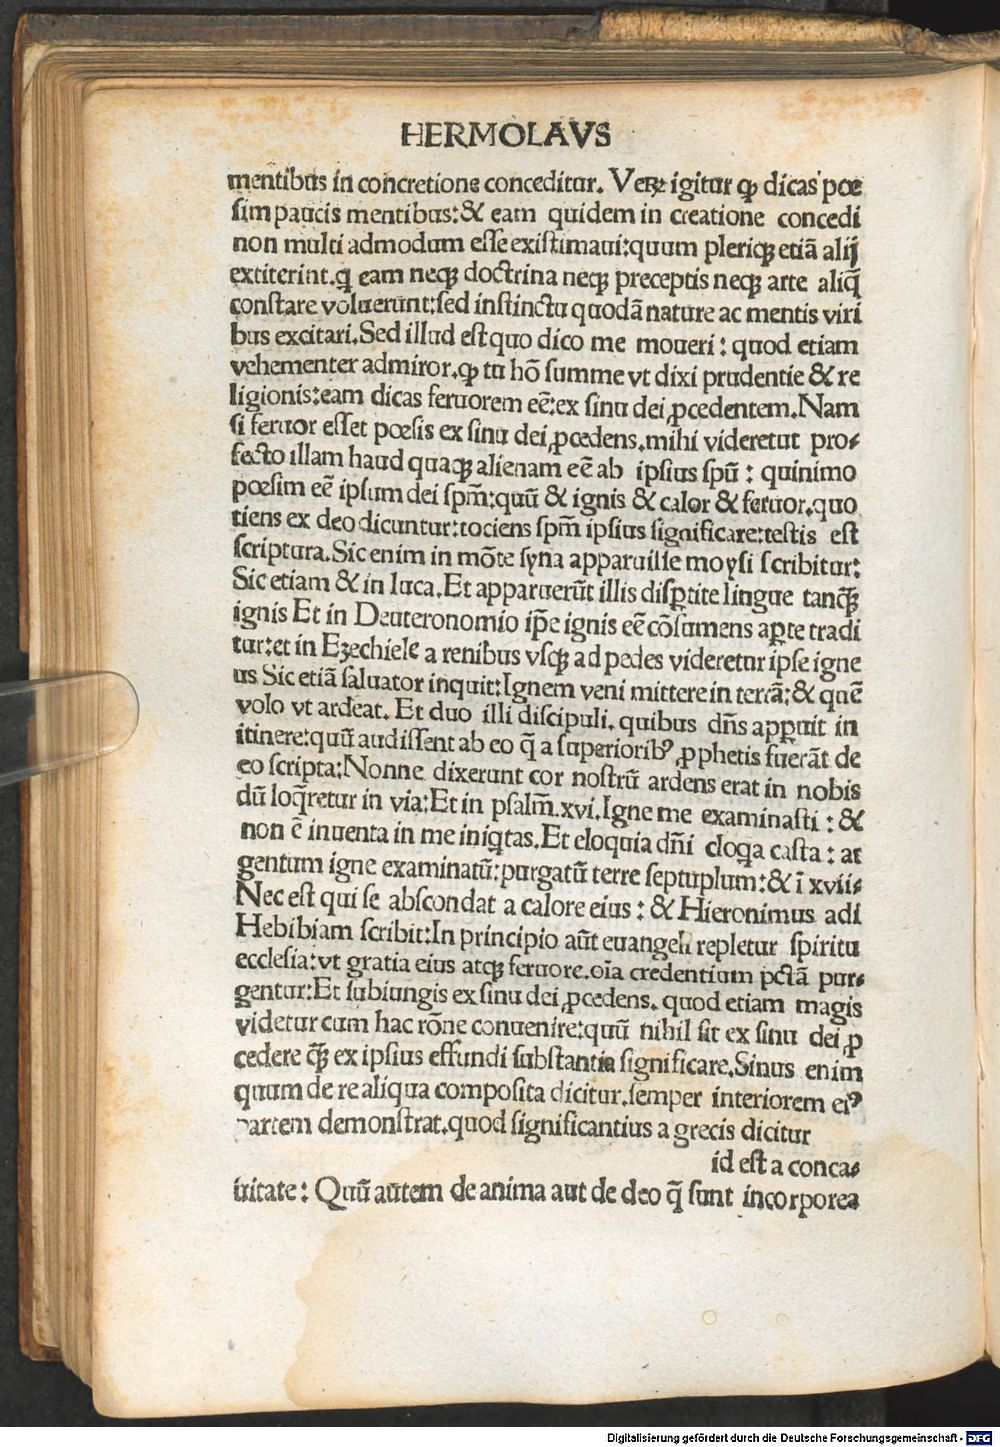 HERMOLAVS
mentibus in concretione conceditur. Veꝝ igitur ꝙ dicas poe
sim paucis mentibus:& eam quidem in creatione concedi
non multi admodum esse existimaui:quum pleriqꝫ etiā alij
extiterint.q eam neqꝫ doctrina neqꝫ preceptis neqꝫ arte aliq̄
constare voluerunt:sed instinctu quodā nature ac mentis viri
bus excitari.Sed illud est quo dico me moueri: quod etiam
vehementer admiror.ꝙ tu hō summe vt dixi prudentie & re
ligionis:eam dicas feruorem eē:ex sinu dei ꝓcedentem.Nam
si feruor esset poesis ex sinu dei ꝓcedens.mihi videretut pro-
fecto illam haud quaqꝫ alienam eē ab ipsius spū: quinimo
poesim eē ipsum dei spm̄:quū & ignis & calor & feruor.quo
tiens ex deo dicuntur:tociens spm̄ ipsius significare:testis est
scriptura.Sic enim in mōte syna apparuisse moysi scribitur:
Sic etiam & in luca.Et apparuerūt illis disꝑtite lingue tanqꝫ̄
ignis Et in Deuteronomio ip̄e ignis eē cōsumens aꝑte tradi
tur:et in Ezechiele a renibus vsqꝫ ad pedes videretur ipse igne
us Sic etiā saluator inquit:Ignem veni mittere in terrā:& quē
volo vt ardeat. Et duo illi discipuli. quibus dn̄s apꝑuit in
itinere:quū audissent ab eo q̄ a superioribꝰ ꝓphetis fuerāt de
eo scripta:Nonne dixerunt cor nostrū ardens erat in nobis
dū loq̄retur in via:Et in psalm̄.xvi.Igne me examinasti: &
non ē inuenta in me iniqtas.Et eloquia dn̄i eloqa casta: ar
gentum igne examinatū:purgatū terre septuplum:& ī xvii-
Nec est qui se abscondat a calore eius: & Hieronimus adi
Hebibiam scribit:In principio aūt euangeli repletur spiritu
ecclesia:vt gratia eius atqꝫ feruore.oīa credentium pctā pur-
gentur:Et subiungis ex sinu dei ꝓcedens. quod etiam magis
videtur cum hac rōne conuenire:quū nihil sit ex sinu dei ꝓ
cedere qꝫ̄ ex ipsius effundi substantia significare.Sinus enim
quum de re aliqua composita dicitur.semper interiorem eiꝰ
partem demonstrat.quod significantius a grecis dicitur
id est a conca-
uitate: Quū autem de anima aut de deo q̄ sunt incorporea
Digitalisierung gefördert durch die Deutsche Forschungsgemeinschaft - DFG